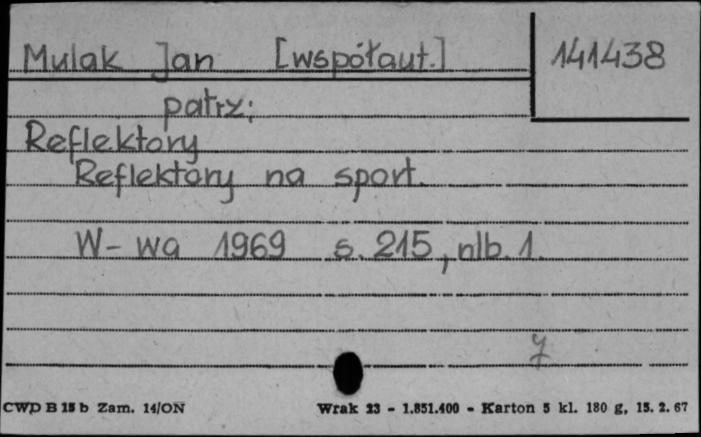 Mulak Jan [współaut.] 141438
patrz:
Reflektory
Reflektory na sport.
W-wa 1969 s. 215, nlb. 1.
7
CWD B 15 b Zam. 14/ON Wrak 23 - 1.851.400 - Karton 5 kl. 180 g, 15. 2. 67